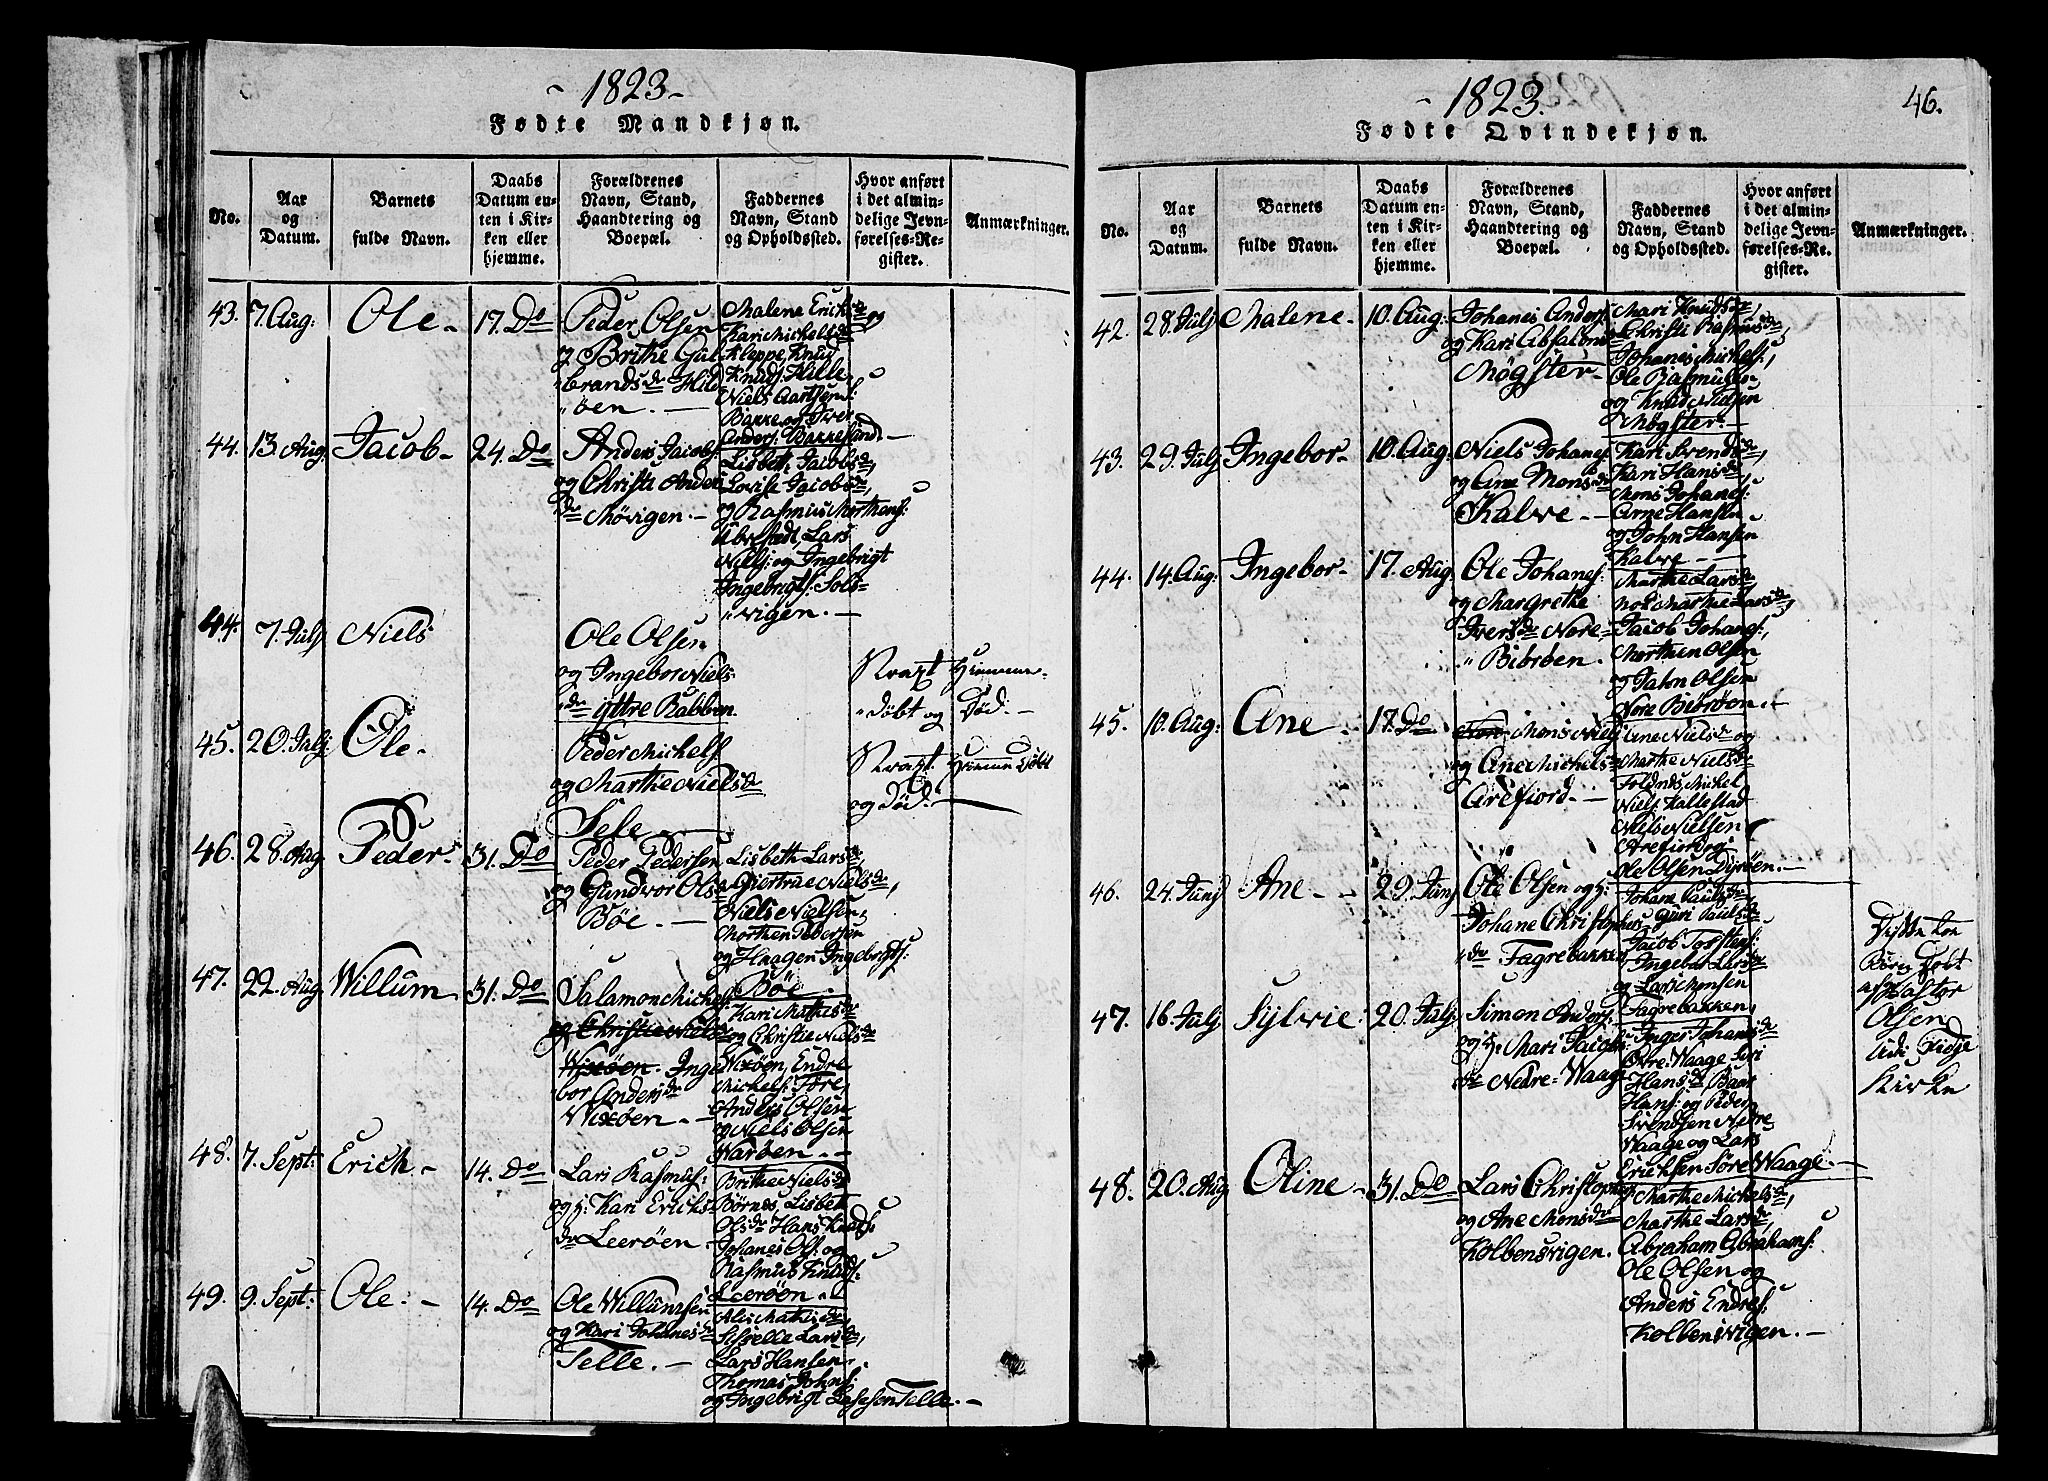 - 1823 -
Fødte Mandkjøn.
No.
Aar
og
Datum.
Barnets
fulde Navn.
Daabs
Datum en-
ten i Kir-
ken eller
hjemme.
Forældrenes
Navn, Stand,
Haandtering og
Boepæl.
Faddernes
Navn, Stand
og Opholdssted.
Hvor anført
i det almin-
delige Jevn-
førelses-Re-
gister.
Anmærkninger.
43. 7 Aug: Ole - 17. Do
Peder Olsen
og Brithe Gul
brandsdr Hild
øen. -
Malene Ericksdr og
Kari Michelsdr
Kleppe, Knud
Knuds: Hille
Niels Aartsen
Bakke og Iver
Anders: Bakkesund -
44. 13. Aug: Jacob - 24. Do
Anders Jacobs:
og Christi Anders
dr Møvigen. -
Lisbeth Jacobsdr,
Lovise Jacobsdr,
og Rasmus Morthens:
Lars
Niels: og Ingebrigt
Ingebrigts: Sols-
vigen. -
44. 7. Julj Niels
Ole Olsen
og Ingebor Niels-
dr yttre Rabben.
Svagt Hiemme-
døbt og Død. -
45. 20. Julj Ole -
Peder Michels
og Marthe Nielsdr
Sele -
Svagt Hiemme Døbt
og Død. -
46. 28. Aug Peder - 31. Do
Peder Pedersen
og Gundvor Olsdr
Bøe. -
Lisbeth Larsdr
Giertrue Nielsdr,
Niels Nielsen,
Morthen Pedersen
og Haagen Ingebrgts:
Bøe. -
47. 22. Aug Willum - 31. Do
Salamon Michels
og Christie Nielsdr
Wixøen. Inge
bor Andersdr
Wixøen. -
Kari Mathisdr
og Christie Nielsdr
Wixøen, Endre
Michels: Tore,
Anders Olsen
og Niels Olsen
Warøen. -
48. 7. Sept: Erich - 14. Do
Lars Rasmus:
og h: Kari Ericks-
dr Leerøen. -
Brithe Nielsdr
Børnes, Lisbeth
Olsdr Hans Knuds:
Johanes Ols: og
Rasmus Knuds:
Leerøen. -
49. 9. Sept: Ole: - 14. Do
Ole Willumsen
og Kari Johanesdr
Telle. -
Alis Mathisdr,
Sissele Larsdr,
Lars Hansen,
Thomas Johns:
og Ingebrigt Lassesen Telle. -
- 1823.
46.
Fødte Qvindekjøn.
No.
Aar
og
Datum.
Barnets
fulde Navn.
Daabs
Datum en-
ten i Kir-
ken eller
hjemme.
Forældrenes
Navn, Stand,
Haandtering og
Boepæl.
Faddernes
Navn, Stand
og Opholdssted.
Hvor anført
i det almin-
delige Jevn-
førelses-Re-
gister.
Anmærkninger.
42. 28. Julj Malene - 10. Aug:
Johanes Anders
og Kari Absalons
Møgster -
Mari Knudsdr
Christi Rasmusdr
Johanes Michels:,
Ole Rasmusen
og Knud Nielsen
Møgster -
43. 29. Julj Ingebor - 10. Aug:
Niels Johanes
og Ane Monsdr
Kalve -
Kari Svendsdr,
Kari Hansdr,
Mons Johanes:
Arne Hansen -
og John Hansen
Kalve -
44. 14. Aug: Ingebor - 17. Aug
Ole Johanes:
og Margrethe
Iversdr Nore-
Biørøen.
Marthe Larsdr
nok Marthe Larsdr,
Jacob Johanes:,
Morthen Olsen
og John Olsen
Nore Biørøen. -
45. 10. Aug: Ane - 17. Do
Mons Niels
og Ane Michelsdr
Arefiord. -
Ane Nielsdr og
Marthe Nielsdr
Foldnes, Michel
Niels Kallestad
Niels Nielsen
Arefiord og
Ole Olsen Dyrøen. -
46. 24. Junj Ane - 29. Junj
Ole Olsen og h:
Johane Christophers-
dr Fagrebakken
Johane Paulsdr
Guri Paulsdr
Jacob Torstens:
Ingebor Larsdr
og Lars Monsen
Fagrebakken,
Dette
Døbt
af Pastor
Olsen
udi Fidje
Kirke
47. 16. Julj Sylvie: 20. Julj
Simon Anders
og h: Mari Jacobs
dr Nedre-Waage
Inger Johansdr
Øvre-Waage Siri
Hansdr Baar
Hans: og Peder
Svendsen Nedre
Waage og Lars
Ericksen Søre Waage. -
48. 20. Aug Oline - 31. Do
Lars Christophers
og Ane Monsdr
Kolbensvigen.
Marthe Michelsdr,
Marthe Larsdr,
Abraham Abrahams:
Ole Olsen og
Anders Endres:
Kolbensvigen. -